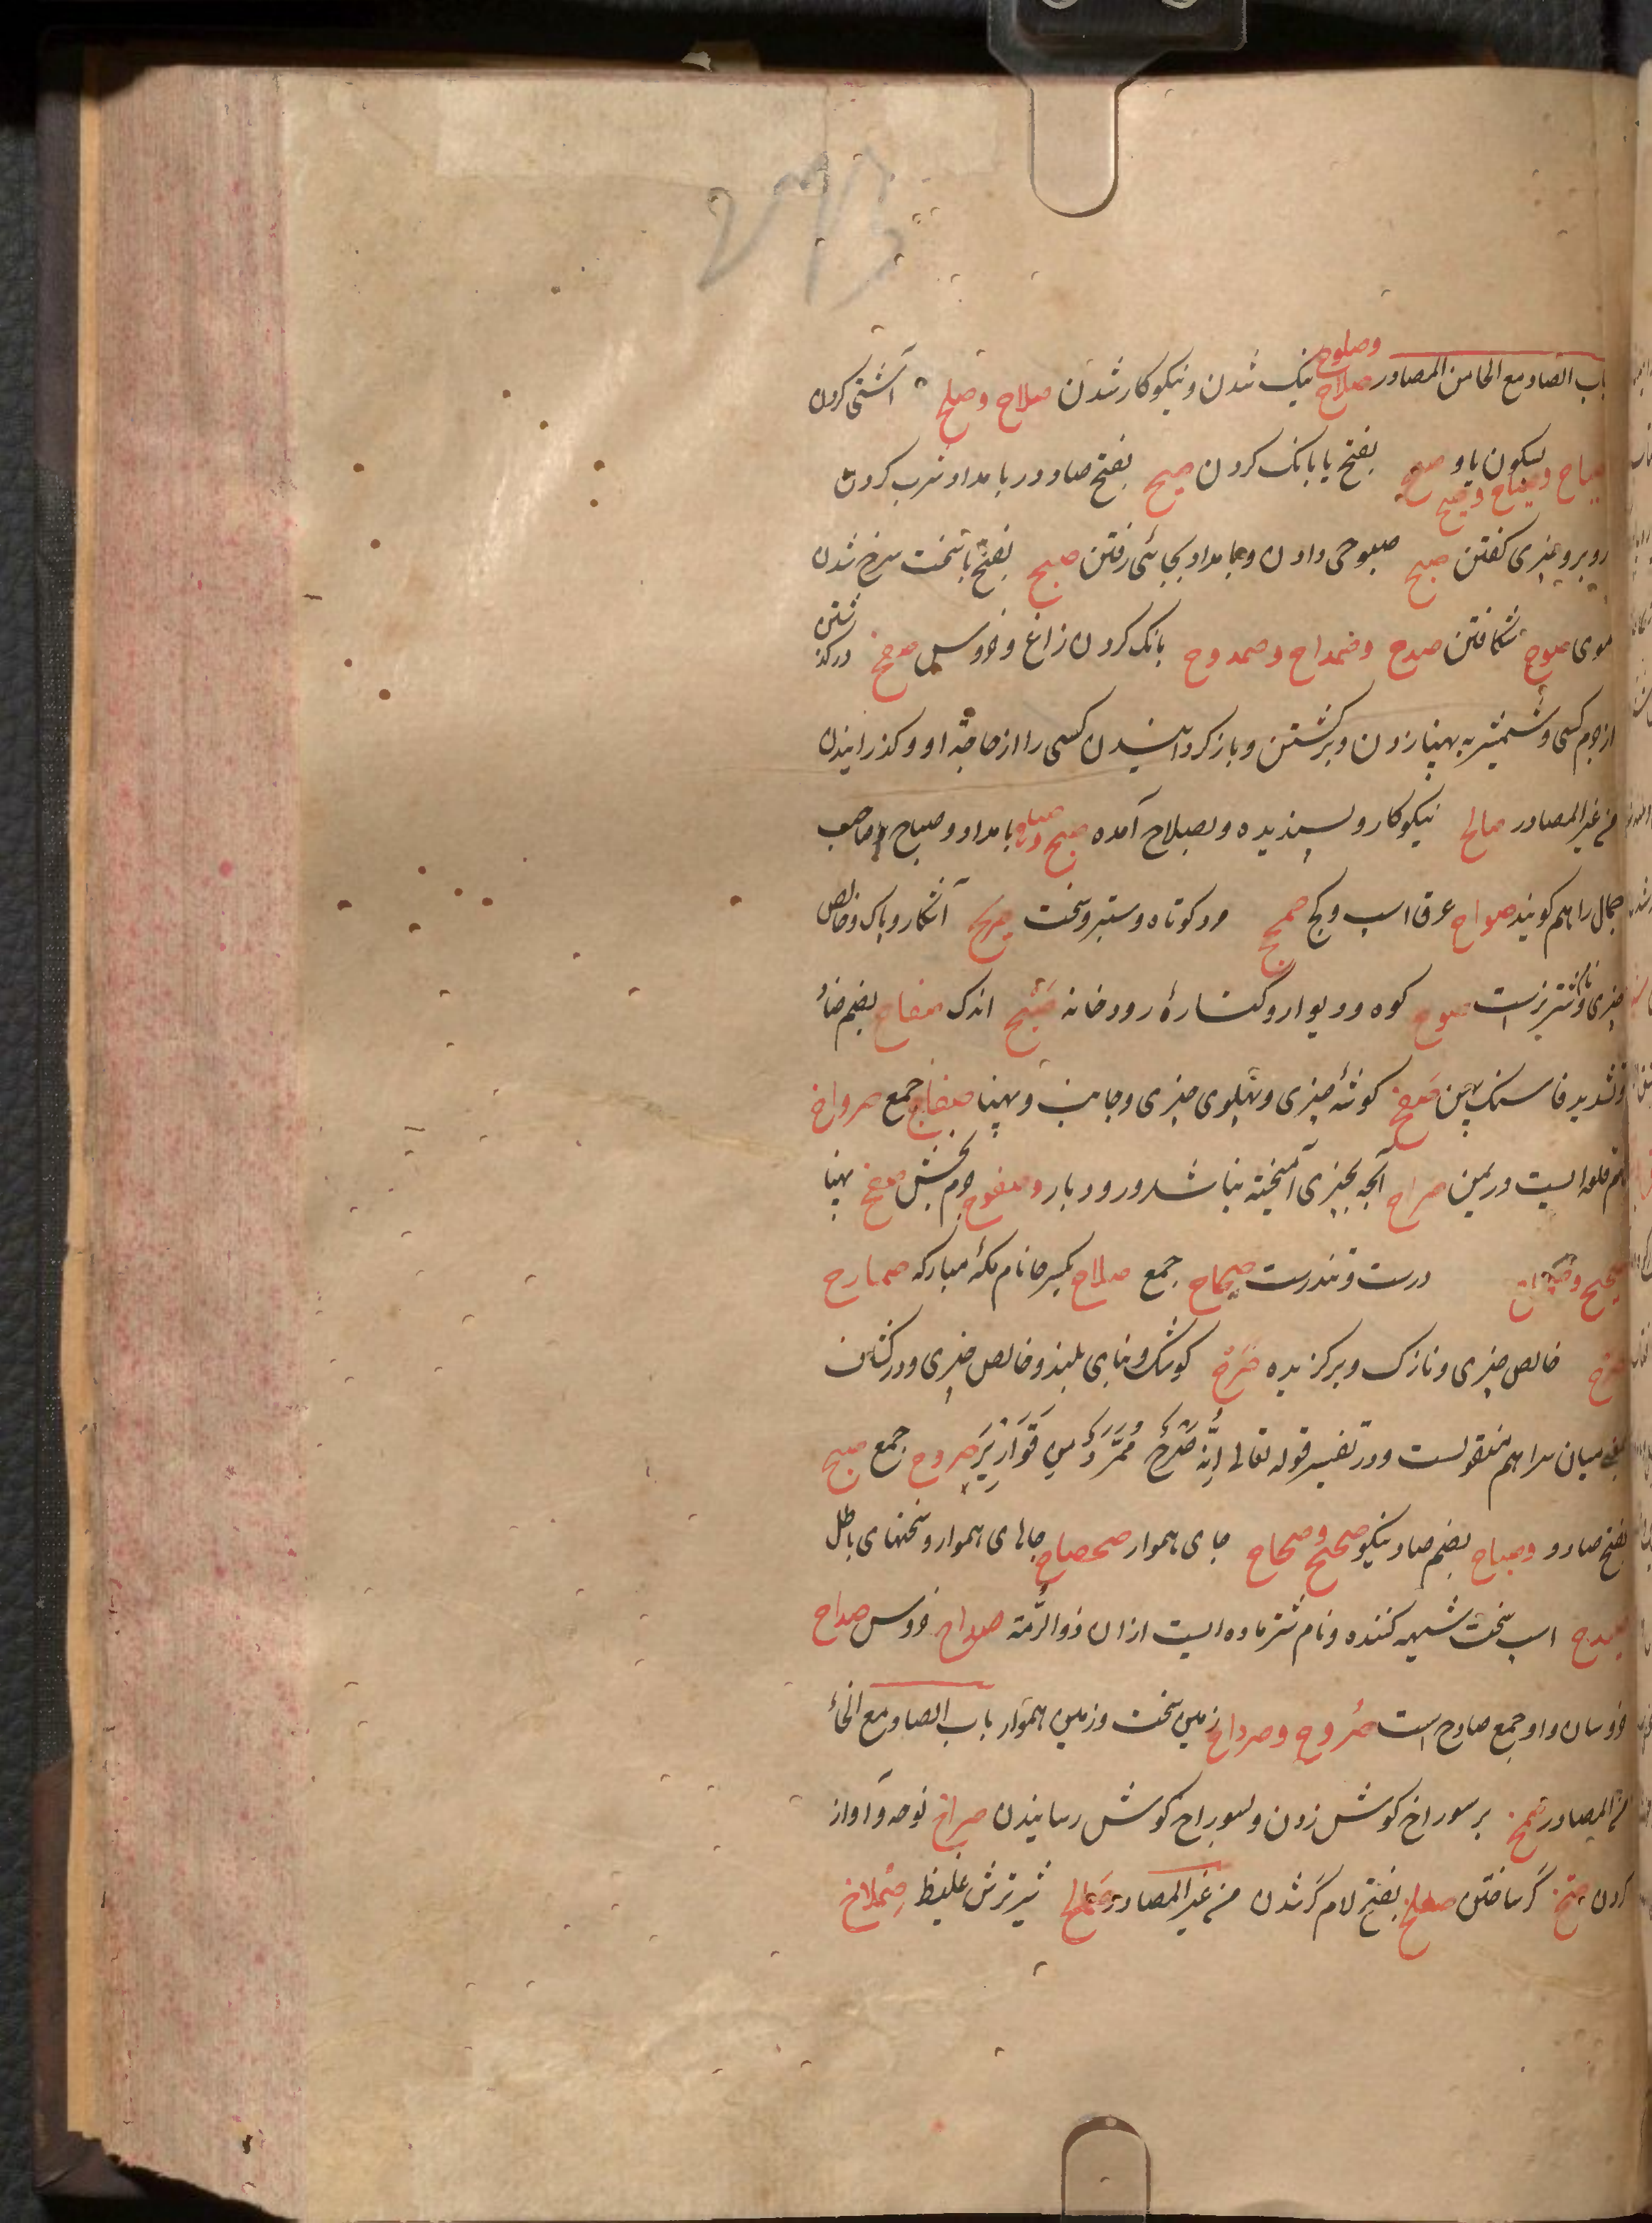 باب الصاد مع الحا من المصادر صلاح وصلوح نیک شدن و نیکوکار شدن صلاح وصلح آشتی کردن
صیاح وصیاح وصیح بسکون یا و صیح بفتح یا بانک کردن صبح بفتح صاد در بامداد شرب کردن
روبرو چیزی کفتن صبح صبوحی دادن و بامداد بجائی رفتن صبح بفتح با سخت سرخ شدن
موی صوح شکافتن صدح وصداح وصدوح بانک کردن زاغ و خروس صفح درکذشتن
از جرم کسی و شمشیر به پهنا زدن و برکشتن و باز کردانیدن کسی را از حاجة او و کذرانیدن
من غیر المصادر صالح نیکوکار و پسندیده و بصلاح آمده صبح وصباح بامداد و صباح صاحب
جمال را هم کویند صواح عرق اسپ و کچ صمحمح مرد کوتاه و ستبر و سخت صریح آشکار و پاک و خالص
چیزی و نام شتریست صوح کوه و دیوار و کنارهٔ رودخانه اندک صفاح بضم صاد
و تشدید فا سنک پهن صفح کوشهٔ چیزی و پهلوی چیزی و جانب و پهنا صفاح جمع صرواح
نام قلعه ایست در یمن صراح آنچه بچیزی آمیخته نباشد و رودبار وصفوح جرم بخش صفح پهنا
صحیح درست و تندرست صحاح جمع صلاح بکسر حا نام مکهٔ مبارکه صمارح
خالص چیزی و نازک و برکزیده صرح کوشک و بنای بلند و خالص چیزی و در کشاف
میان سرا هم منقولست و در تفسیر قوله تعالی اِنَّهُ صَرْحٌ مُمَرَّدٌ مِن قَوَارِيْرَ صروح جمع صبیح
بفتح صاد و وصباح بضم صاد نیکو صحصح وصحصاح جای هموار صحاصح جاهای هموار و سخنهای باطل
صیدح اسپ سخت شیهه کننده و نام شتر ماده ایست از ان ذو الرّمة صداح خروس صداح
خروسان و او جمع صادح است صروح وصرداح زمین سخت و زمین هموار باب الصاد مع الخاء
من المصادر صمخ بر سوراخ کوش زدن و بسوراخ کوش رسانیدن صراخ نوحه و آواز
کردن صخ کر ساختن صلخ بفتح لام کر شدن من غیر المصادر صمالخ شیر ترش غلیظ صملاخ